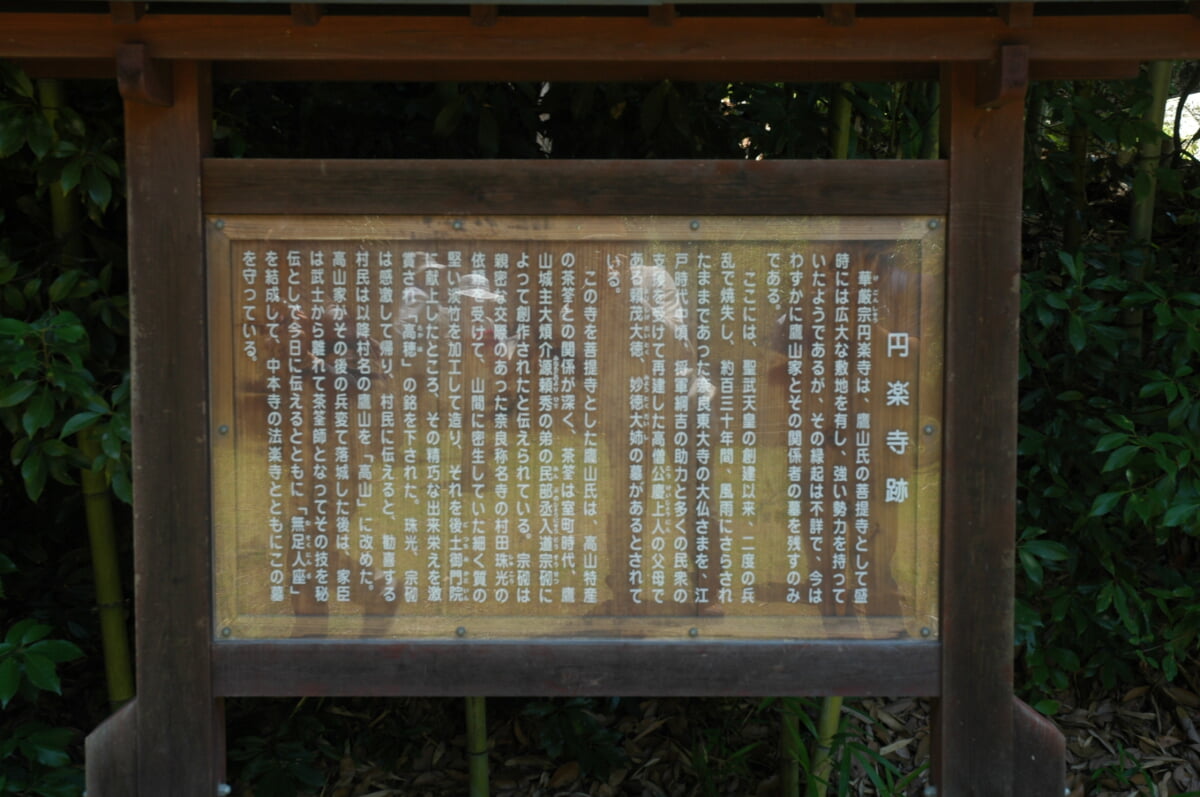 円楽寺跡
華厳宗円楽寺は、鷹山氏の菩提寺として盛
時には広大な敷地を有し、強い勢力を持って
いたようであるが、その縁起は不詳で、今は
わずかに鷹山家とその関係者の墓を残すのみ
である。
ここには、聖武天皇の創建以来、二度の兵
乱で焼失し、約百三十年間、風雨にさらされ
たままであった奈良東大寺の大仏さまを、江
戸時代中頃、将軍綱吉の助力と多くの民衆の
支援を受けて再建した高僧公慶上人の父母で
ある頼茂大徳、妙徳大姉の墓があるとされて
いる。
この寺を菩提寺とした鷹山氏は、高山特産
の茶筌との関係が深く、茶筌は室町時代、鷹
山城主大煩介源頼秀の弟の民部丞入道宗砌に
よって創作されたと伝えられている。宗砌は
親密な交際のあった奈良称名寺の村田珠光の
依頼を受けて、山間に密生していた細く質の
堅い淡竹を加工して造り、それを後土御門院
に献上したところ、その精巧な出来栄えを激
賞され「高穂」の銘を下された。珠光、宗砌
は感激して帰り、村民に伝えると、勧喜する
村民は以降村名の鷹山を「高山」に改めた。
高山家がその後の兵変で落城した後は、家臣
は武士から離れて茶筌師となってその技を秘
伝として今日に伝えるとともに「無足人座」
を結成して、中本寺の法楽寺とともにこの墓
を守っている。